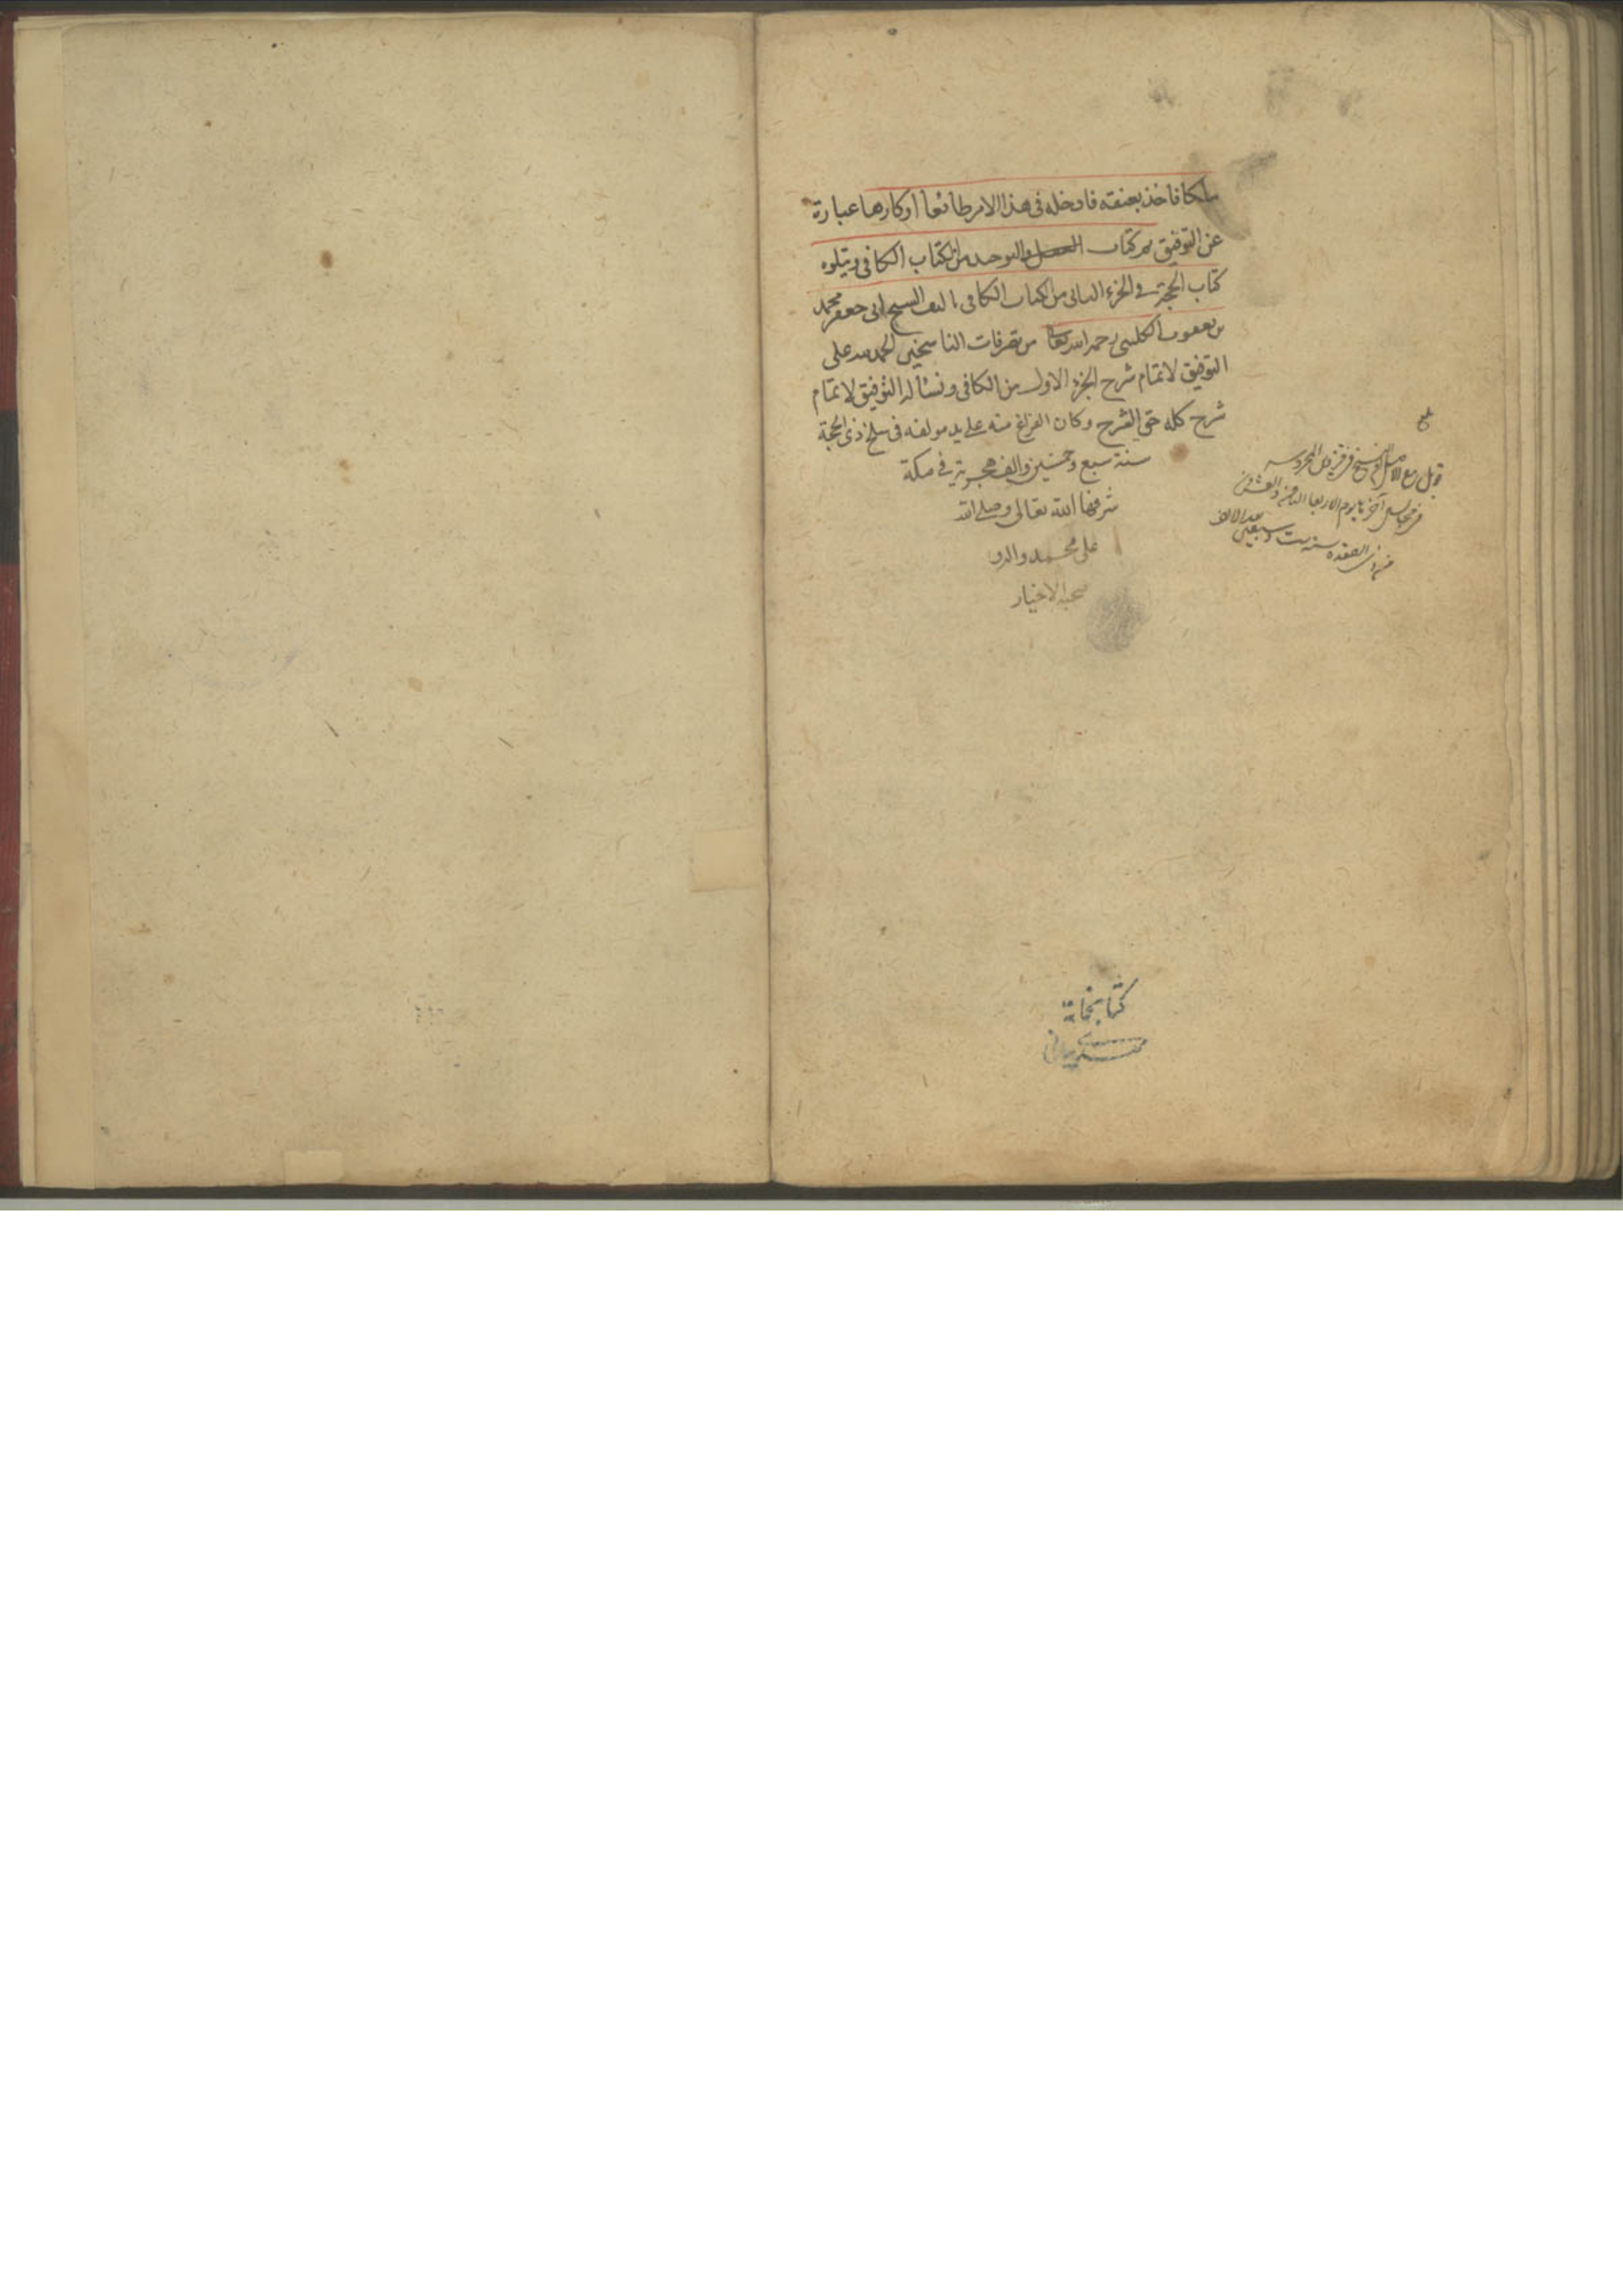 ملكا فاخذ بعنقه فادخله فى هذا الامر طائعا اوكارها عبارة
عن التوفيق تم كتاب العقل والتوحيد من كتاب الكافى ويتلوه
كتاب الحجة فى الجزء الثانى من الكتاب الكافى تاليف الشيخ ابى جعفر محمد
بن يعقوب الكلينى رحمه الله تعالى من تصرفات الناسخين الحمد لله على
التوفيق لاتمام شرح الجزء الاول من الكافى ونسأله التوفيق لاتمام
شرح كله حق الشرح وكان الفراغ منه على يد مولفه فى سلخ ذى الحجة
سنة سبع وخمسين والف هجرية فى مكة
شرفها الله تعالى وصلى الله
على محمد واله و
صحبه الاخيار
قوبل مع الاصل فى قزوين المحروسه
فى مجالس آخرها يوم الاربعا الثامن والعشرون
من ذى القعده سنه ست وسبعين بعد الالف
كتابخانة